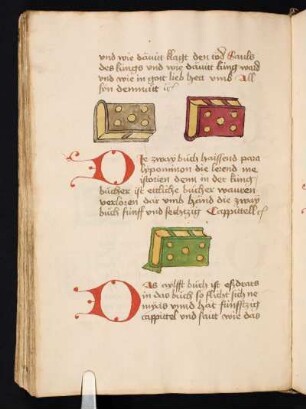 vnd wie dauitt klagt den tod Sauls
des küngs vnd wie dauitt küng ward
vnd wie in gott lieb hett vmb All
son demuitt
Die zway buch haissend para
lypominon die seiend me
istorien denn in der küng
bücher ist ettliche bücher warren
verloren dar vmb hand die zway
buch fünff vnd sechtzig Cappittell
Das aylfft buch ist esdras
in das buch so flicht sich ne
mias vnnd hat fünfftzig
cappittel vnd saitt wie das